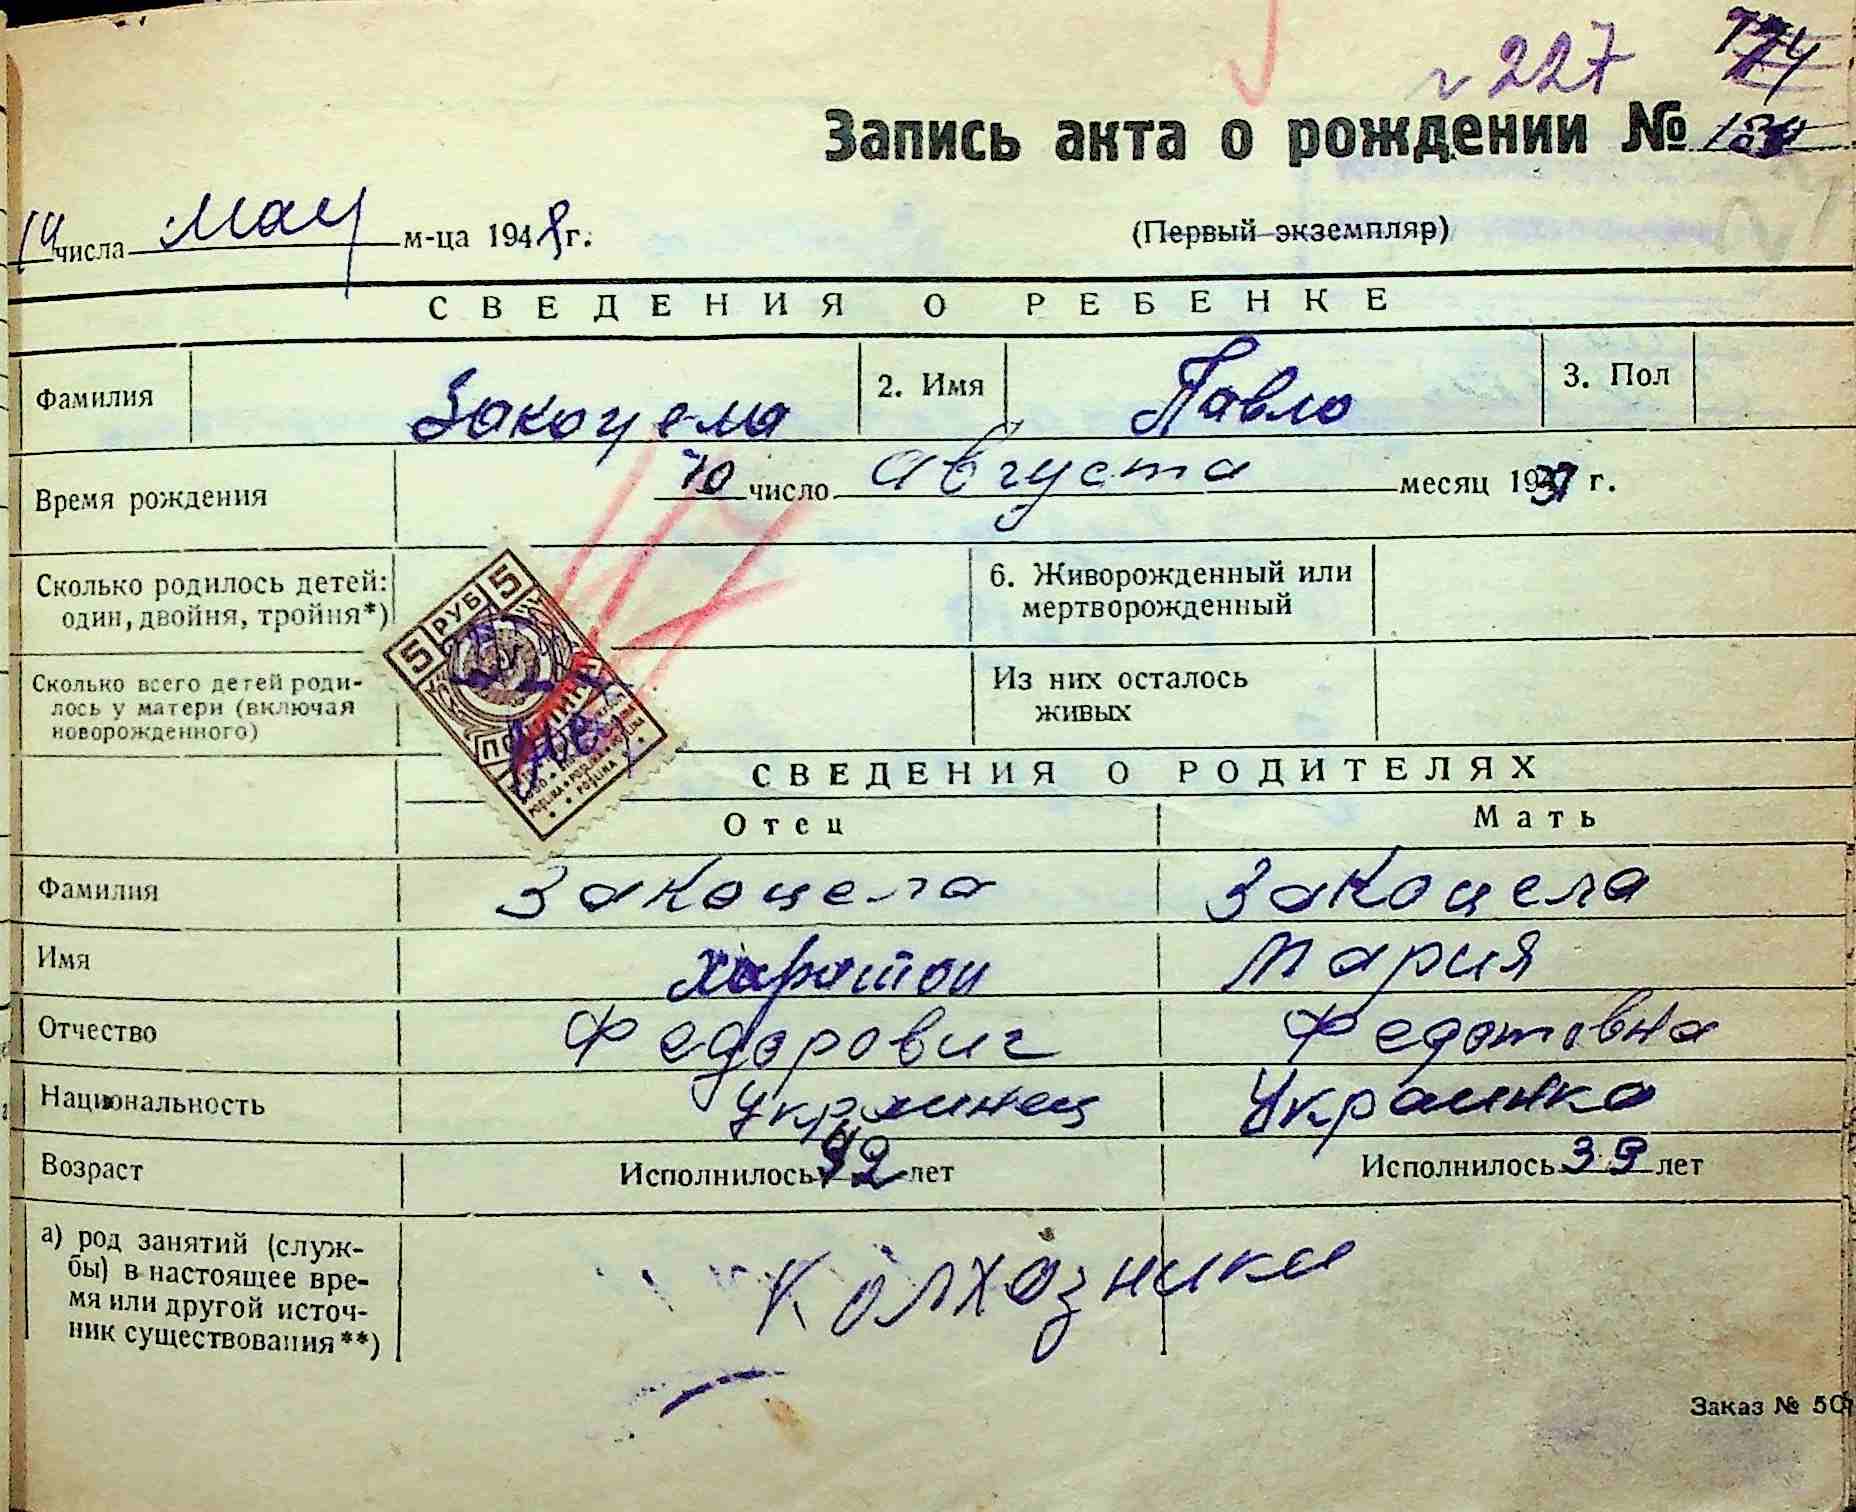 № 227
Запись акта о рождении №
14 числа мая м-ца 1948 г.
(Первый экземпляр)
СВЕДЕНИЯ О РЕБЕНКЕ
Фамилия Закоцела 2. Имя Павло 3. Пол
Время рождения 10 число августа месяц 1937 г.
Сколько родилось детей: 6. Живорожденный или
один, двойня, тройня*) мертворожденный
5 РУБ 5
Сколько всего детей роди- Из них осталось
лось у матери (включая живых
новорожденного)
СВЕДЕНИЯ О РОДИТЕЛЯХ
Отец Мать
Фамилия Закоцела Закоцела
Имя Харитон Мария
Отчество Федорович Федотовна
Национальность Украинец Украинка
Возраст Исполнилось 42 лет Исполнилось 39 лет
а) род занятий (служ-
бы) в настоящее вре- Колхозники
мя или другой источ-
ник существования**)
Заказ № 50